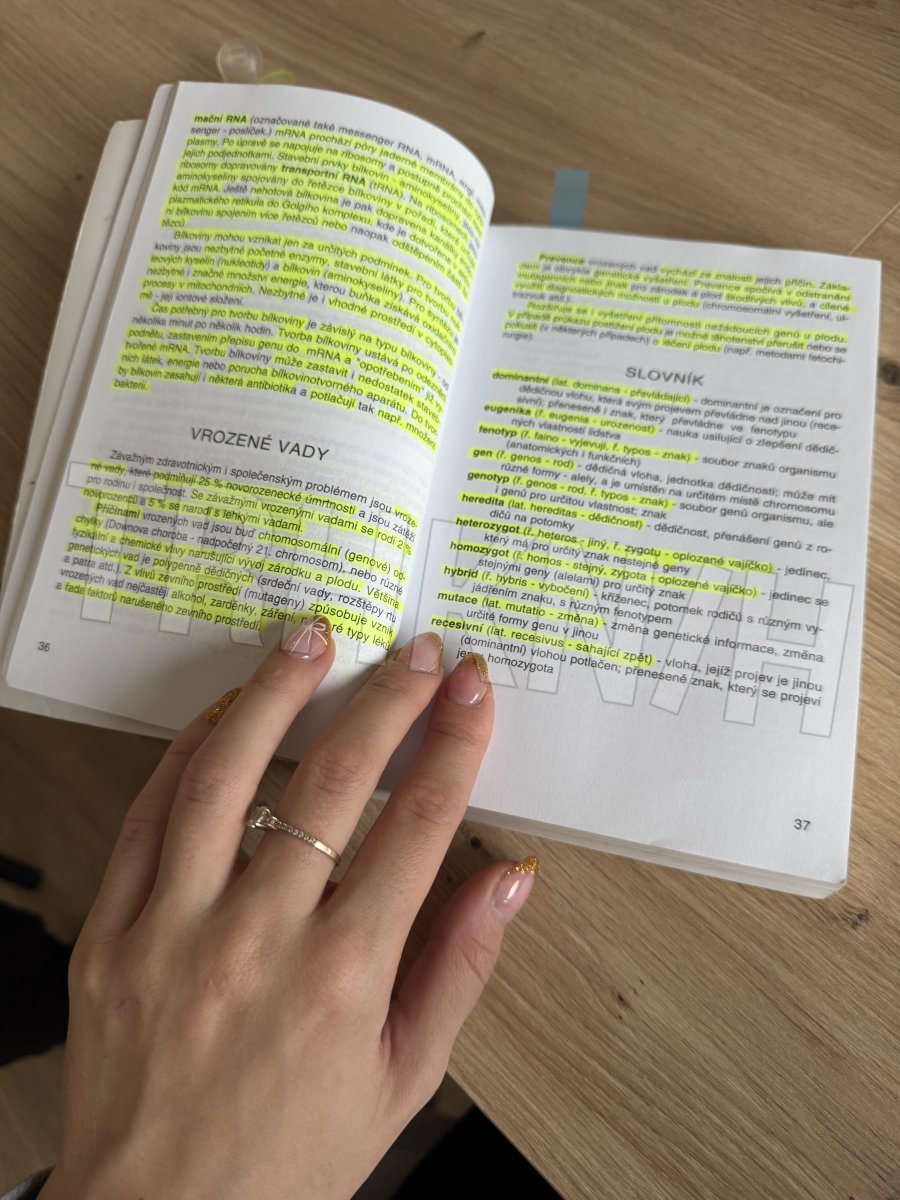 mační RNA (označované také messenger RNA, mRNA, angl. mes-
senger - poslíček.) mRNA prochází póry jaderné membrány do cyto-
plasmy. Po úpravě se napojuje na ribosomy a postupně prochází
jejich podjednotkami. Stavební prvky bílkovin - aminokyseliny jsou k
ribosomy dopravovány transportní RNA (tRNA). Na ribosomech jsou
aminokyseliny spojovány do řetězce bílkoviny v pořadí, které určuje
kód mRNA. Ještě nehotová bílkovina je pak dopravena kanálky endo-
plazmatického retikula do Golgiho komplexu, kde je dotvořena
ní bílkovinu spojením více řetězců nebo naopak odštěpením částí
tězců.
Bílkoviny mohou vznikat jen za určitých podmínek. Pro tvorbu bíl-
koviny jsou nezbytné početné enzymy, stavební látky pro tvorbu nuk-
leových kyselin (nukleotidy) a bílkovin (aminokyseliny). Pro syntézu je
nezbytné i značné množství energie, kterou buňka získává oxidačními
procesy v mitochondriích. Nezbytné je i vhodné prostředí v cytoplas-
mě - její iontové složení.
Čas potřebný pro tvorbu bílkoviny je závislý na typu bílkoviny - od
několika minut po několik hodin. Tvorba bílkoviny ustává po odeznění
podnětu, zastavením přepisu genu do mRNA a "opotřebením" již vy-
tvořené mRNA. Tvorbu bílkoviny může zastavit i nedostatek staveb-
ních látek, energie nebo porucha bílkovinotvorného aparátu. Do tvor-
by bílkovin zasahují i některá antibiotika a potlačují tak např. množení
bakterií.
VROZENÉ VADY
Závažným zdravotnickým i společenským problémem jsou vroze-
né vady, které podmiňují 25 % novorozenecké úmrtnosti a jsou zátěží
pro rodinu i společnost. Se závažnými vrozenými vadami se rodí 2 %
novorozenců a 5 % se narodí s lehkými vadami.
Příčinami vrozených vad jsou buď chromosomální (genové) od-
chylky (Downova choroba - nadpočetný 21. chromosom), nebo různé
fyzikální a chemické vlivy narušující vývoj zárodku a plodu. Většina
genetických vad je polygenně dědičných (srdeční vady, rozštěpy rtu
a patra atd.). Z vlivů zevního prostředí (mutageny) způsobuje vznik
vrozených vad nejčastěji alkohol, zarděnky, záření, některé typy léků
a řada faktorů narušeného zevního prostředí.
36
Prevence vrozených vad vychází ze znalosti jejich příčin. Zákla-
dem je obvykle genetické vyšetření. Prevence spočívá v odstranění
mutagenních nebo jinak pro zárodek a plod škodlivých vlivů, a cílené
využití diagnostických možností u plodu (chromosomální vyšetření, ul-
trazvuk atd.).
Rozšiřuje se i vyšetření přítomnosti nežádoucích genů u plodu.
V případě průkazu postižení plodu je možné těhotenství přerušit nebo se
pokusit (v některých případech) o léčení plodu (např. metodami fetochi-
rurgie).
SLOVNÍK
dominantní (lat. dominans - převládající) - dominantní je označení pro
dědičnou vlohu, která svým projevem převládne nad jinou (rece-
sivní); přeneseně i znak, který převládne ve fenotypu
eugenika (ř. eugenia - urozenost) - nauka usilující o zlepšení dědič-
ných vlastností lidstva
fenotyp (ř. faino - vyjevuji, ř. typos - znak) - soubor znaků organismu
(anatomických i funkčních)
gen (ř. genos - rod) - dědičná vloha, jednotka dědičnosti; může mít
různé formy - alely, a je umístěn na určitém místě chromosomu
genotyp (ř. genos - rod, ř. typos - znak) - soubor genů organismu, ale
i genů pro určitou vlastnost; znak
heredita (lat. hereditas - dědičnost) - dědičnost, přenášení genů z ro-
dičů na potomky
heterozygot (ř. heteros - jiný, ř. zygotu - oplozené vajíčko) - jedinec,
který má pro určitý znak nestejné geny
homozygot (ř. homos - stejný, zygota - oplozené vajíčko) - jedinec se
stejnými geny (alelami) pro určitý znak
hybrid (ř. hybris - vybočení) - kříženec, potomek rodičů s různým vy-
jádřením znaku, s různým fenotypem
mutace (lat. mutatio - změna) - změna genetické informace, změna
určité formy genu v jinou
recesivní (lat. recesivus - sahající zpět) - vloha, jejíž projev je jinou
(dominantní) vlohou potlačen; přeneseně znak, který se projeví
jen u homozygota
37